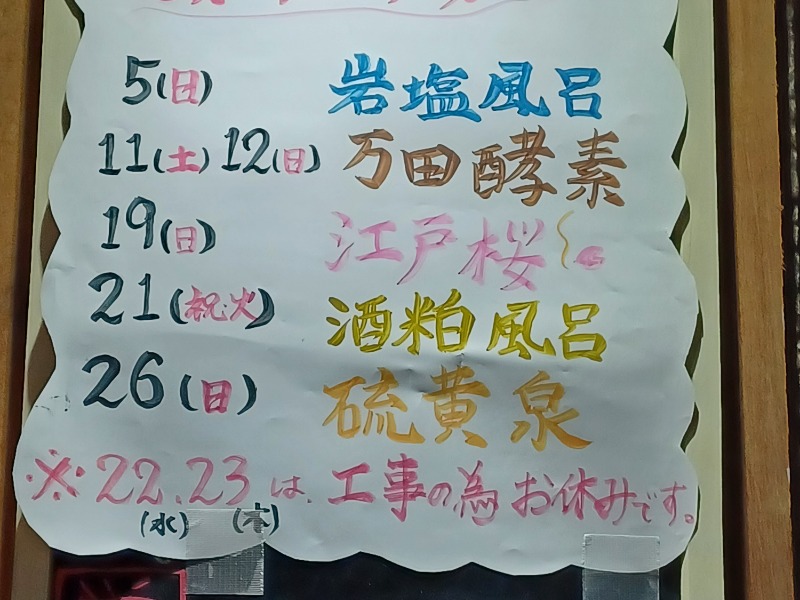 5(日) 岩塩風呂
11(土) 12(日) 万田酵素
19(日) 江戸桜
21(祝・火) 酒粕風呂
26(日) 硫黄泉
※22、23は、工事の為お休みです。
(水) (木)